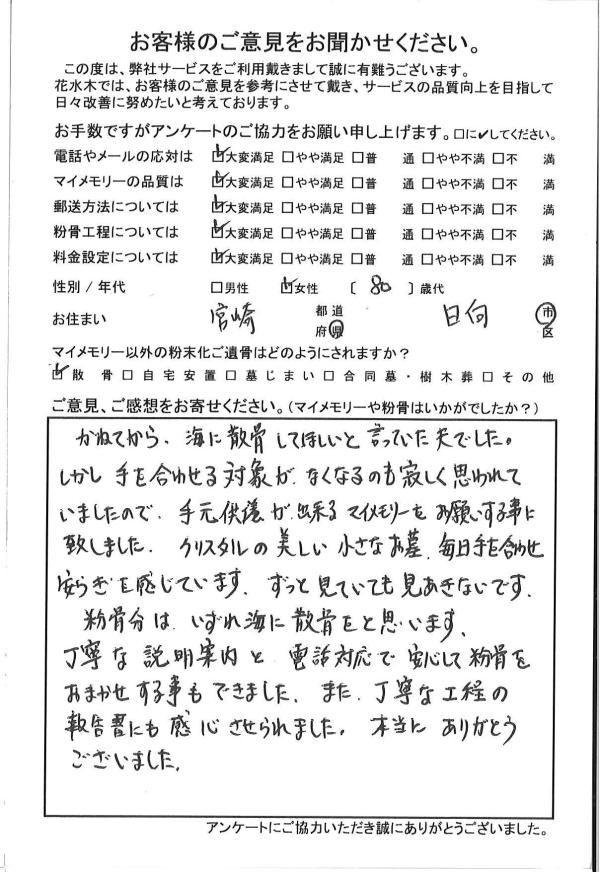 お客様のご意見をお聞かせください。
この度は、弊社サービスをご利用戴きまして誠に有難うございます。
花水木では、お客様のご意見を参考にさせて戴き、サービスの品質向上を目指して
日々改善に努めたいと考えております。
お手数ですがアンケートのご協力をお願い申し上げます。□に✔してください。
電話やメールの応対は ☑大変満足 □やや満足 □普 通 □やや不満 □不 満
マイメモリーの品質は ☑大変満足 □やや満足 □普 通 □やや不満 □不 満
郵送方法については ☑大変満足 □やや満足 □普 通 □やや不満 □不 満
粉骨工程については ☑大変満足 □やや満足 □普 通 □やや不満 □不 満
料金設定については ☑大変満足 □やや満足 □普 通 □やや不満 □不 満
性別 / 年代 □男性 ☑女性 〔 80 〕歳代
お住まい 宮崎 都道府県 日向 市区
マイメモリー以外の粉末化ご遺骨はどのようにされますか？
☑散 骨 □自宅安置 □墓じまい □合同墓・樹木葬 □その他
ご意見、ご感想をお寄せください。（マイメモリーや粉骨はいかがでしたか？）
かねてから、海に散骨してほしいと言っていた夫でした。
しかし手を合わせる対象が、なくなるのも寂しく思われて
いましたので、手元供養が出来るマイメモリーをお願いする事に
致しました。クリスタルの美しい小さなお墓、毎日手を合わせ
安らぎを感じています。ずっと見ていても見あきないです。
粉骨分は、いずれ海に散骨をと思います。
丁寧な説明案内と、電話対応で安心して粉骨を
おまかせする事もできました。また、丁寧な工程の
報告書にも感心させられました。本当にありがとう
ございました。
アンケートにご協力いただき誠にありがとうございました。